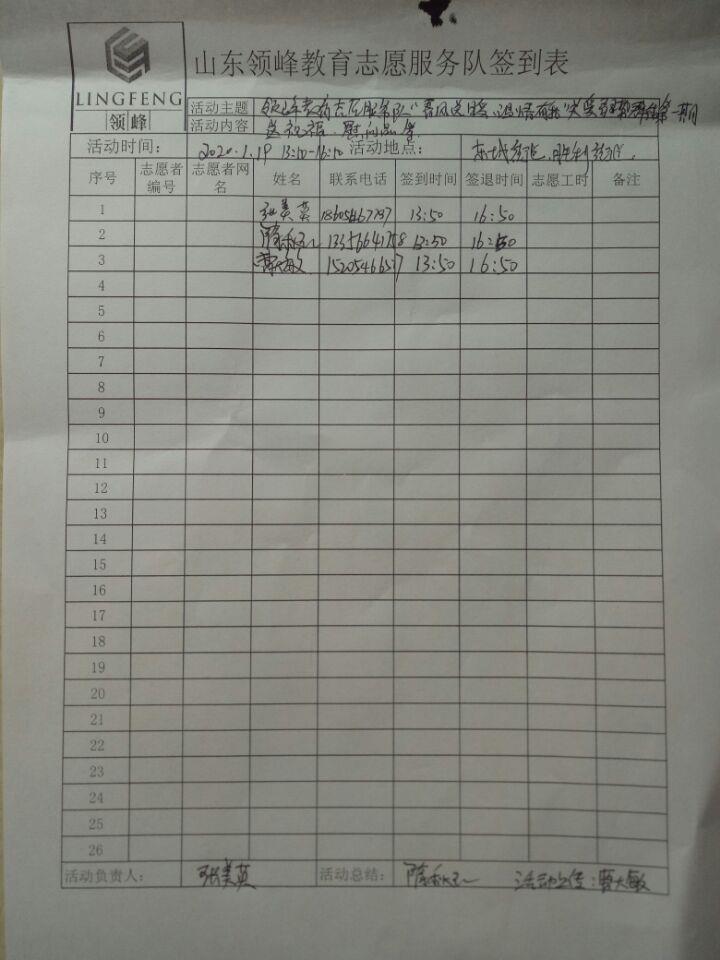 山东领峰教育志愿服务队签到表
LINGFENG
领峰
活动主题 领峰教育志愿服务队"春风送暖
活动内容 送祝福、慰问品等
活动时间： 2020.1.19 13:10-16:10 活动地点：
序号 志愿者编号 志愿者网名 姓名 联系电话 签到时间 签退时间 志愿工时 备注
1 张美英 13:50 16:50
2 隋 13:50 16:50
3 曹大敏 13:50 16:50
4
5
6
7
8
9
10
11
12
13
14
15
16
17
18
19
20
21
22
23
24
25
26
活动负责人： 张美英 活动总结： 隋 活动宣传：曹大敏